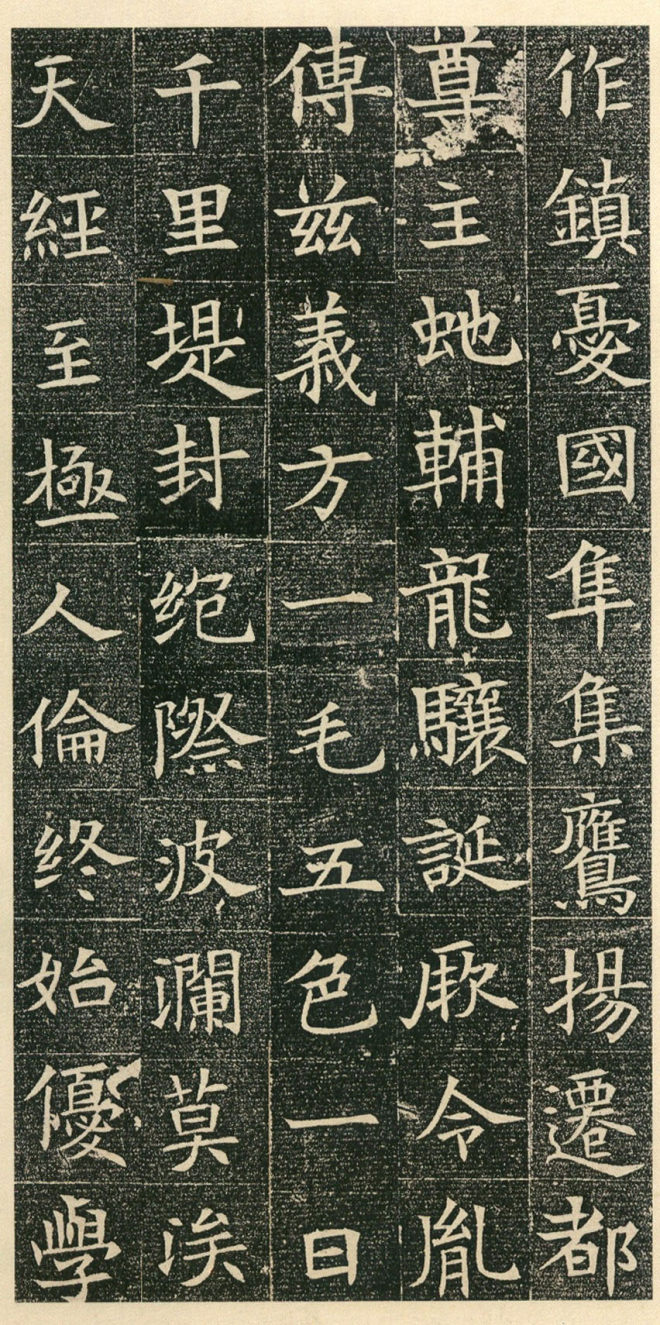 作鎮憂國隼集鷹揚遷都
尊主虵輔龍驤誕厥令胤
傳兹義方一毛五色一日
千里堤封絕際波瀾莫涘
天經至極人倫終始優學